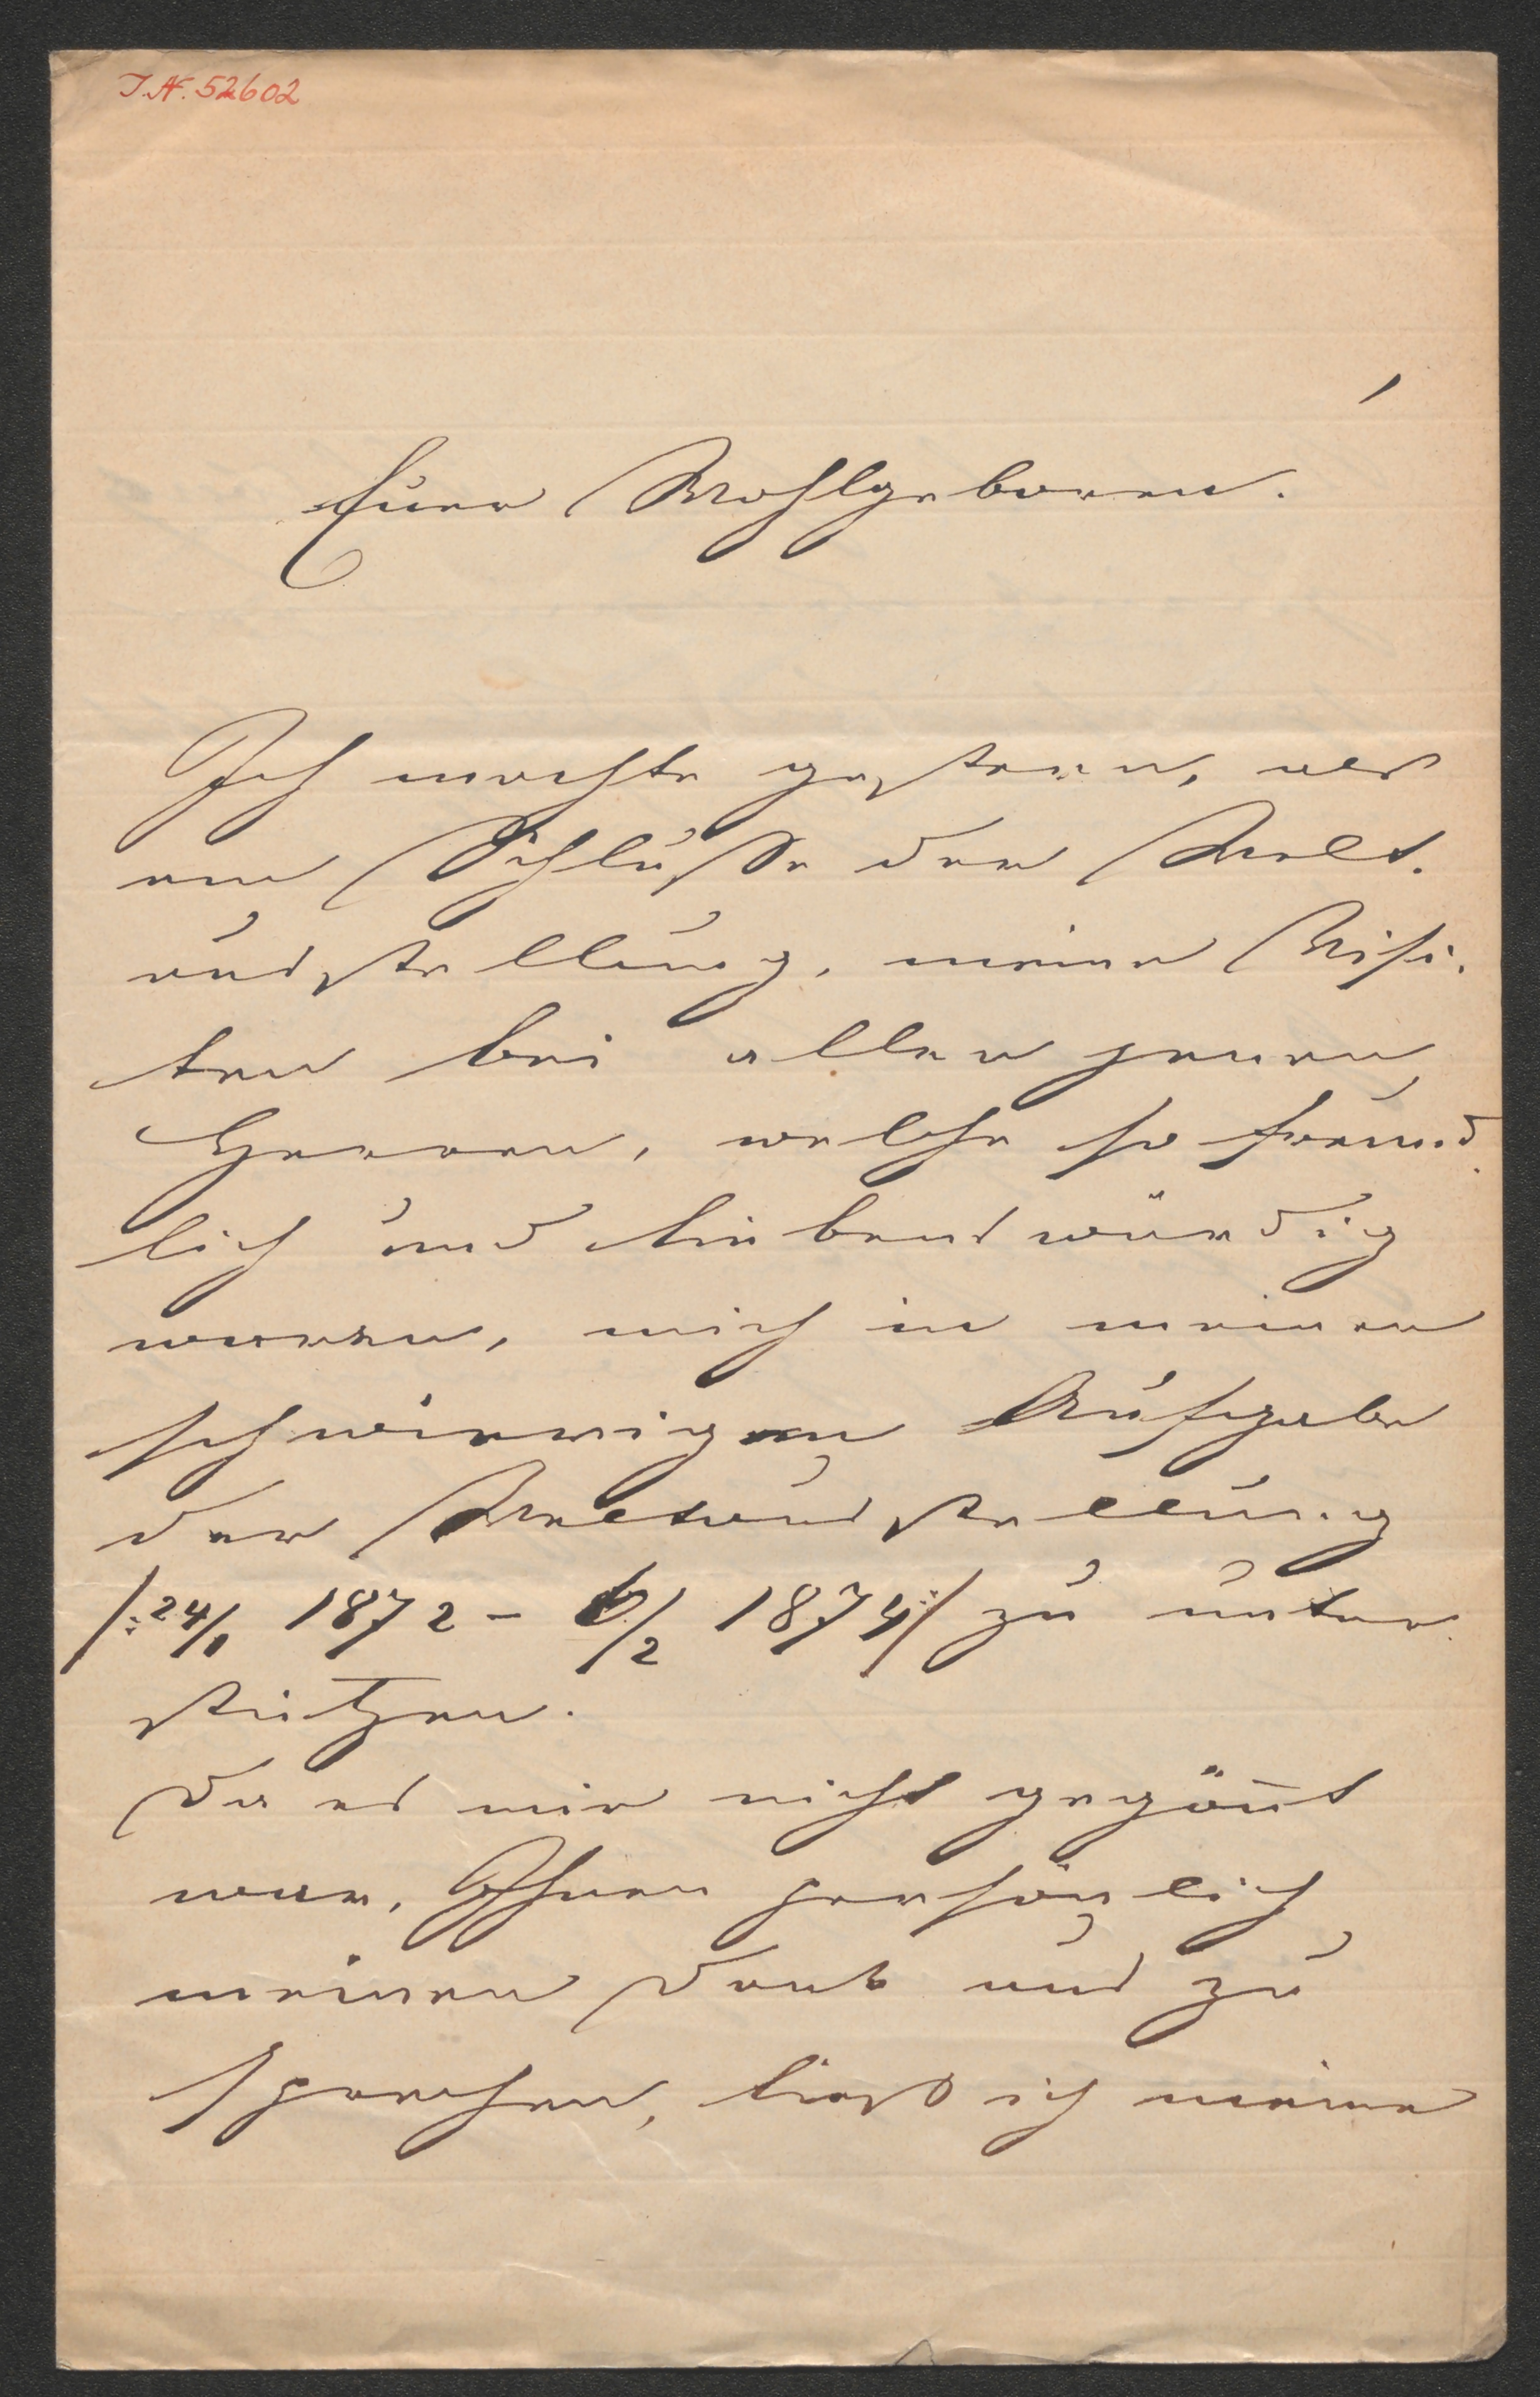 I.N. 52602
Euer Wohlgeboren.
Ich machte gestern, als
am Schluße der Welt-
ausstellung, meine Visi-
ten bei allen jenen
Herren, welche so freund-
lich und liebenswürdig
waren, mich in meiner
schwierigen Aufgabe
der Weltausstellung
/: 24/1 1872 - 6/2 1874 :/ zu unter-
stützen.
Da es mir nicht gegönt
war, Ihnen persönlich
meinen Dank aus zu
sprechen, ließ ich meine